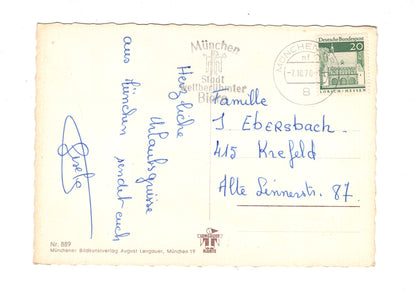 Herzliche
Urlaubsgrüsse
aus München sendet euch
Gisela
München
Stadt
weltberühmter
Biere
MÜNCHEN
-7.10.70
8
Deutsche Bundespost
20
LORSCH · HESSEN
Familie
J Ebersbach
415 Krefeld
Alte Linnerstr. 87.
Nr. 889
Münchener Bildkunstverlag August Lengauer, München 19